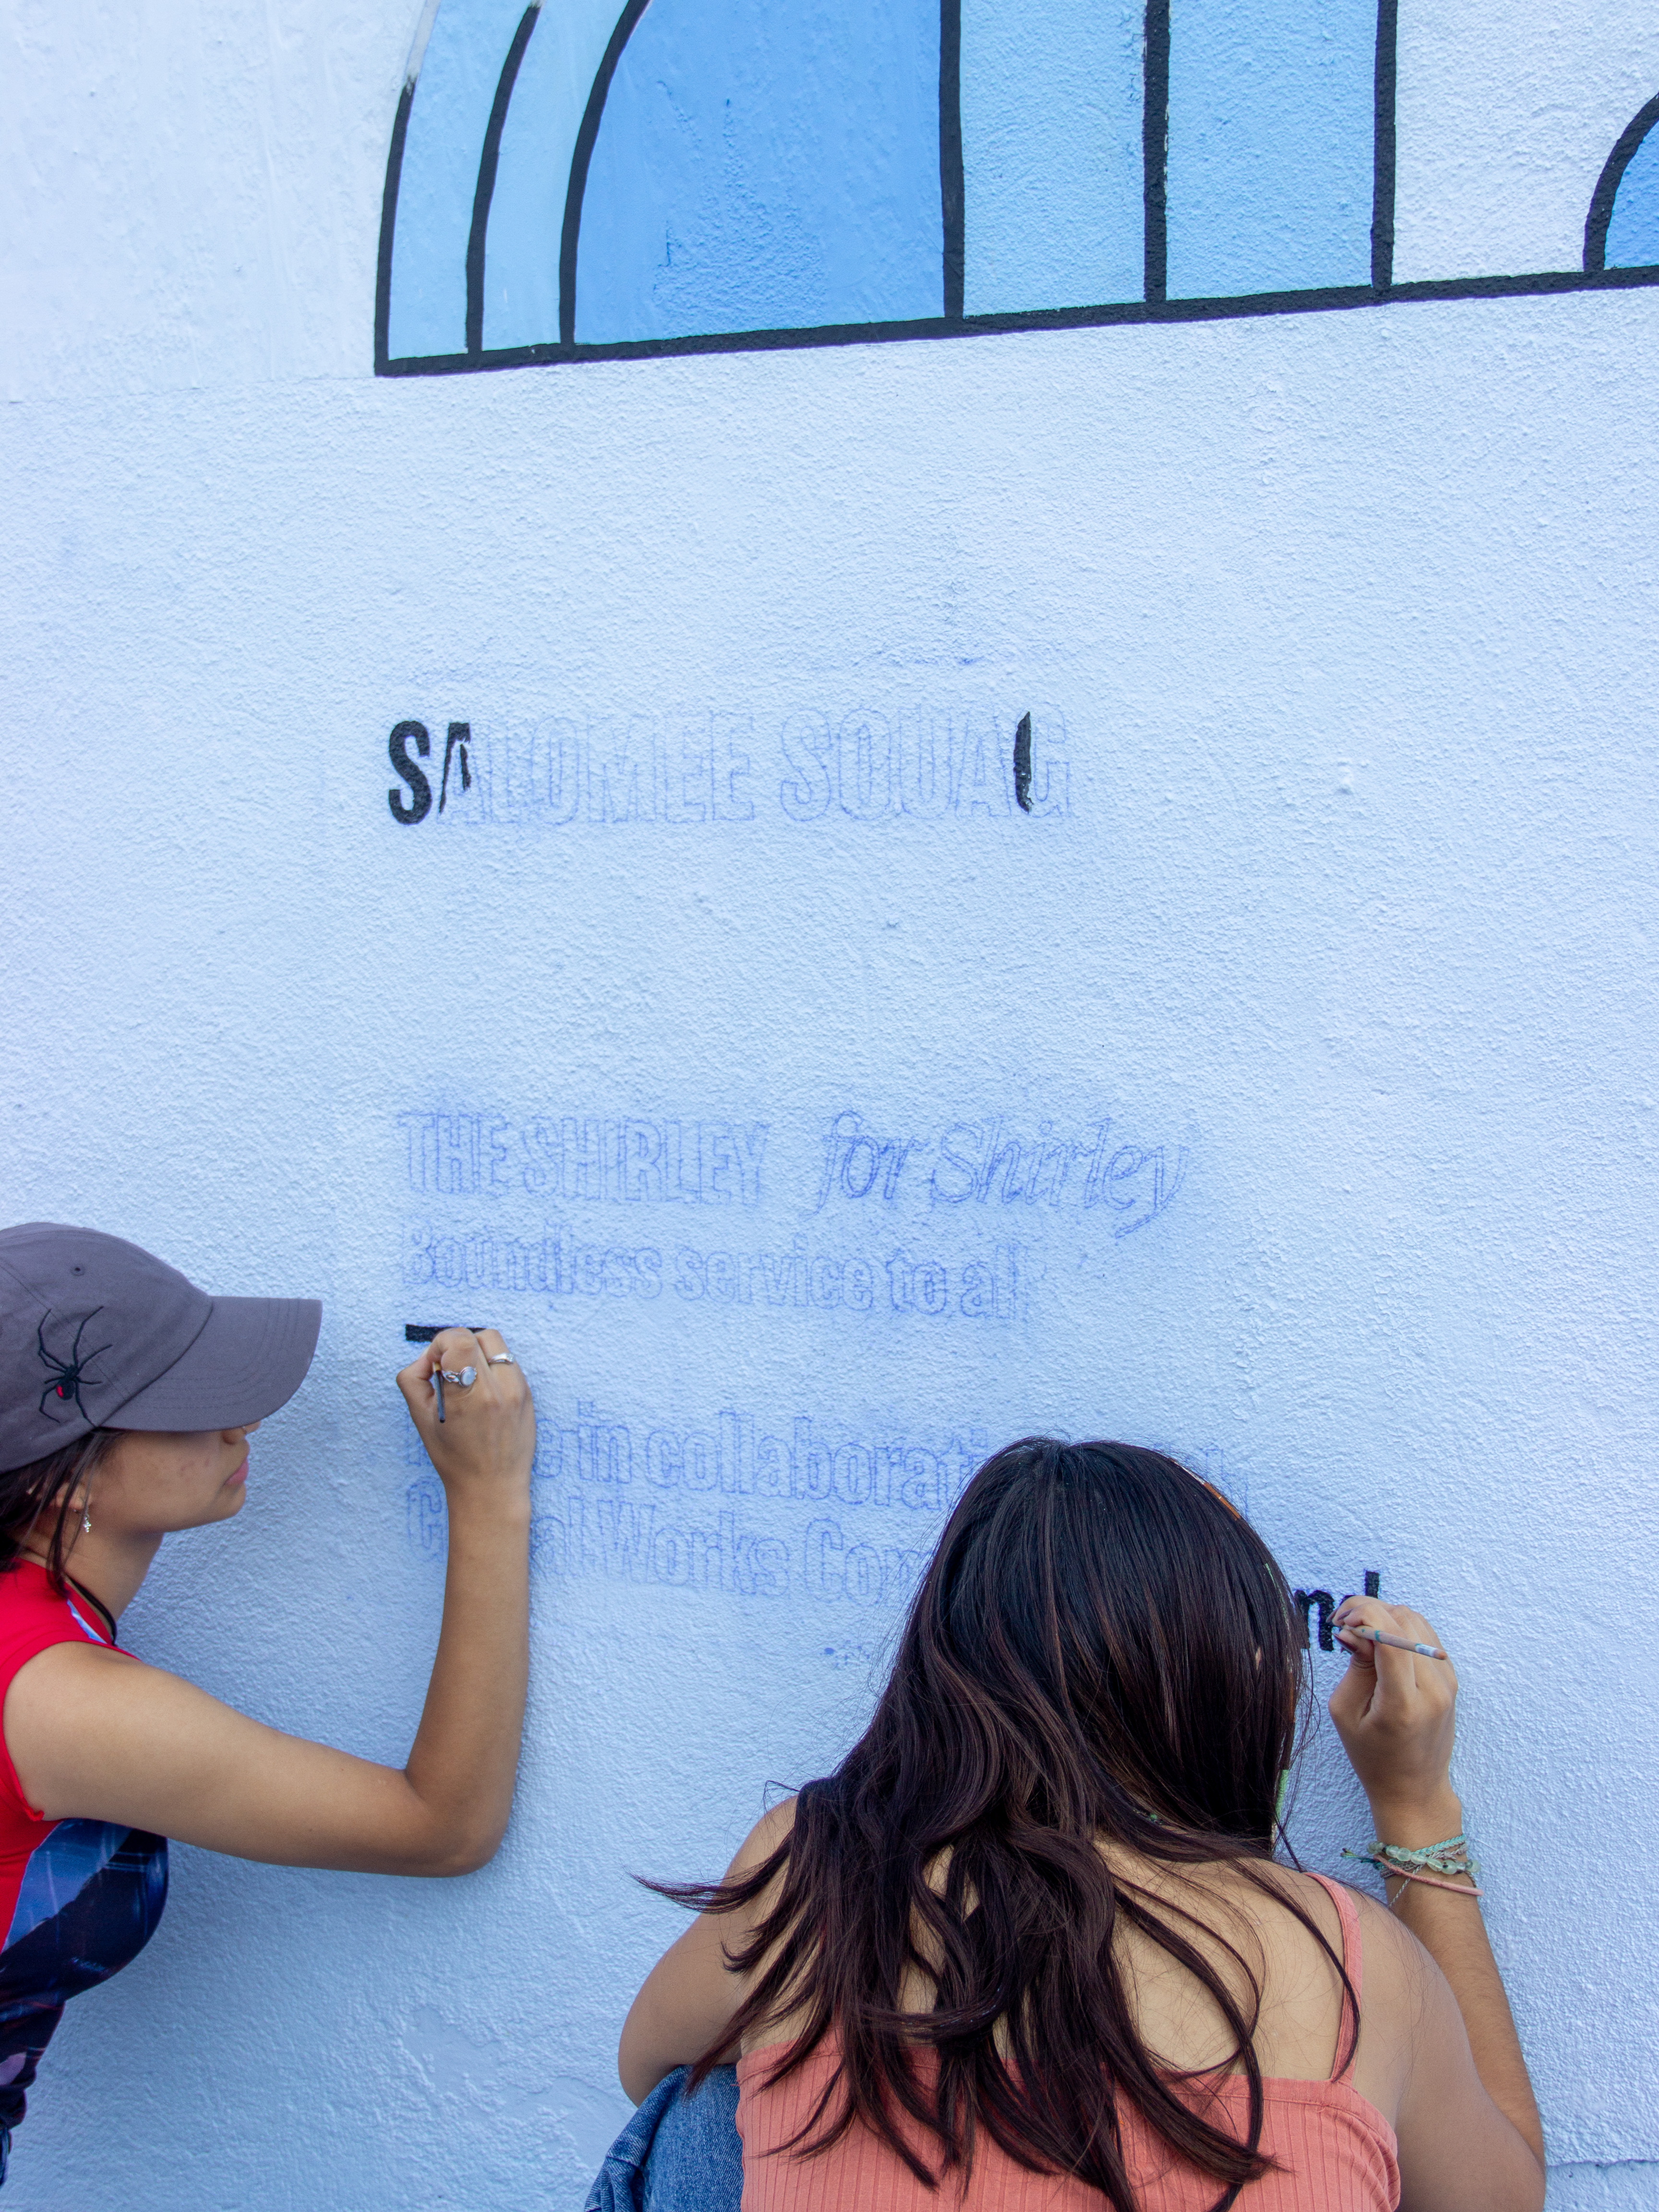 SALOMEE SOUAG
THE SHIRLEY for Shirley
Boundless service to all
in collaborati
Works Com